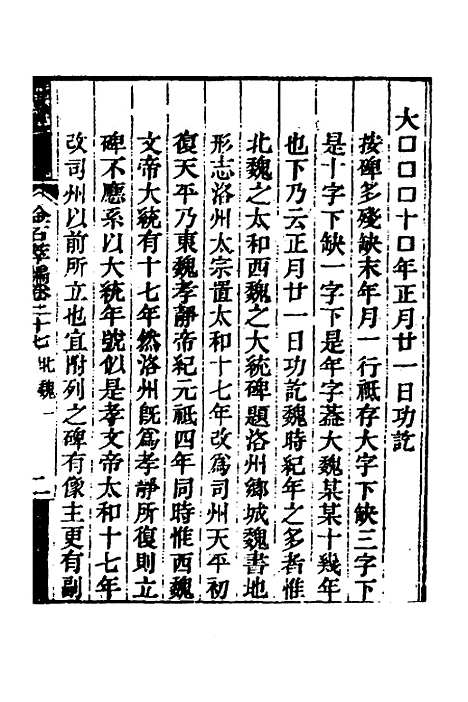 大口口口十口年正月廿一日功訖
按碑多殘缺末年月一行祇存大字下缺三字下
是十字下缺一字下是年字葢大魏某某十幾年
也下乃云正月廿一日功訖魏時紀年之多者惟
北魏之太和西魏之大統碑題洛州鄉城魏書地
形志洛州太宗置太和十七年改爲司州天平初
復天平乃東魏孝靜帝紀元祇四年同時惟西魏
文帝大統有十七年然洛州旣爲孝靜所復則立
碑不應系以大統年號似是孝文帝太和十七年
改司州以前所立也宜附列之碑有像主更有副
金石萃編卷二十七 北魏一 二